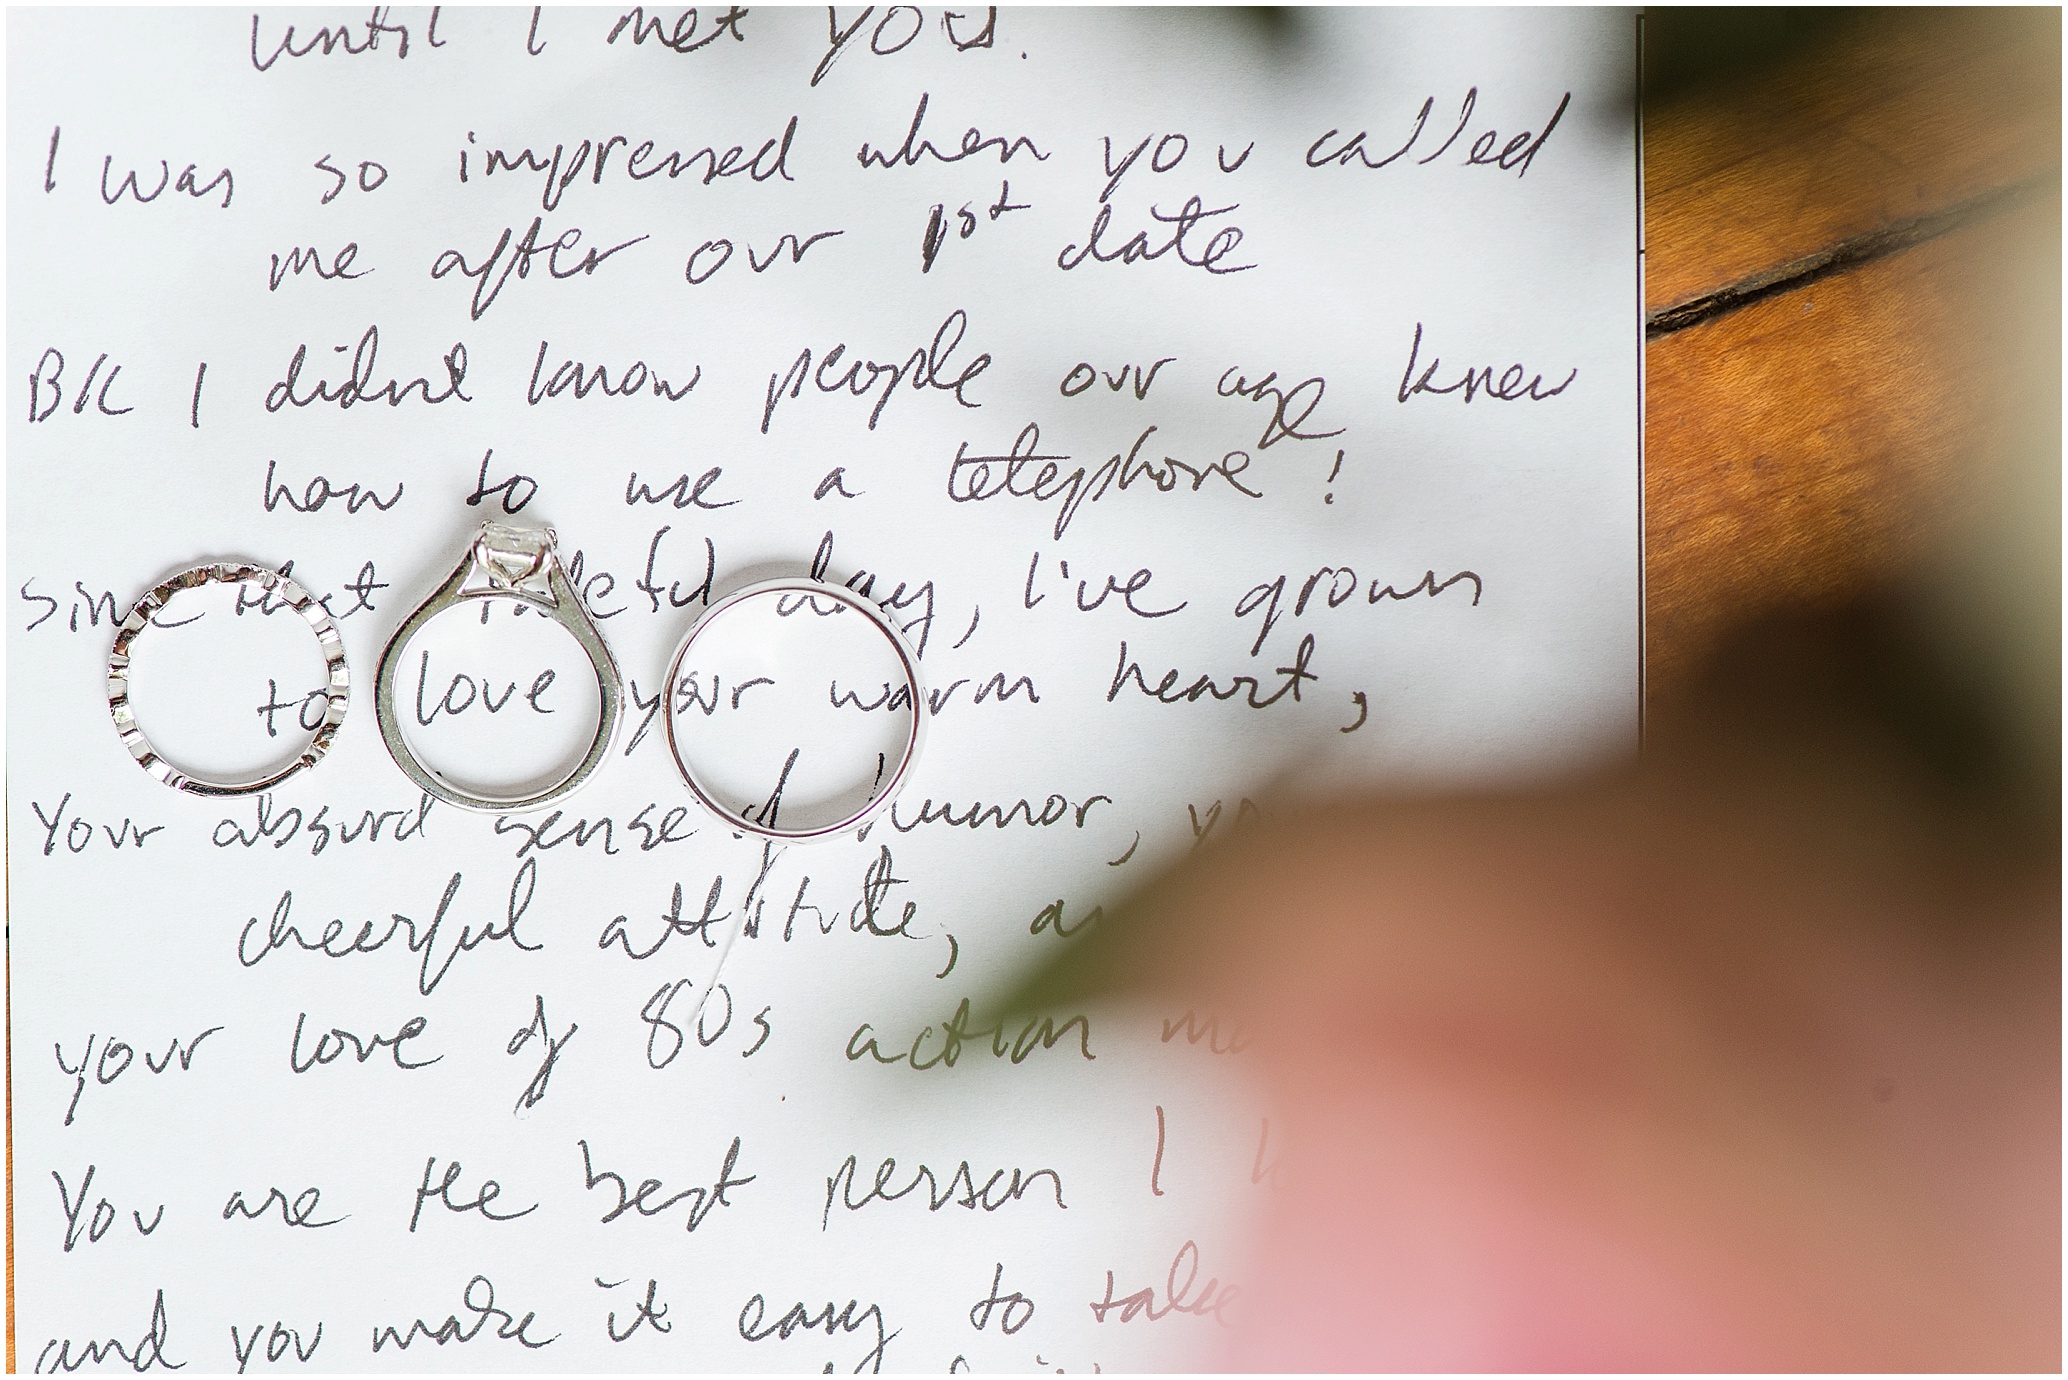 until I met you.
I was so impressed when you called
me after our 1st date
B/c I didn't know people our age knew
how to use a telephone!
Since that fateful day, I've grown
to love your warm heart,
Your absurd sense of humor,
cheerful attitude,
your love of 80s action
You are the best person I
and you make it easy to take